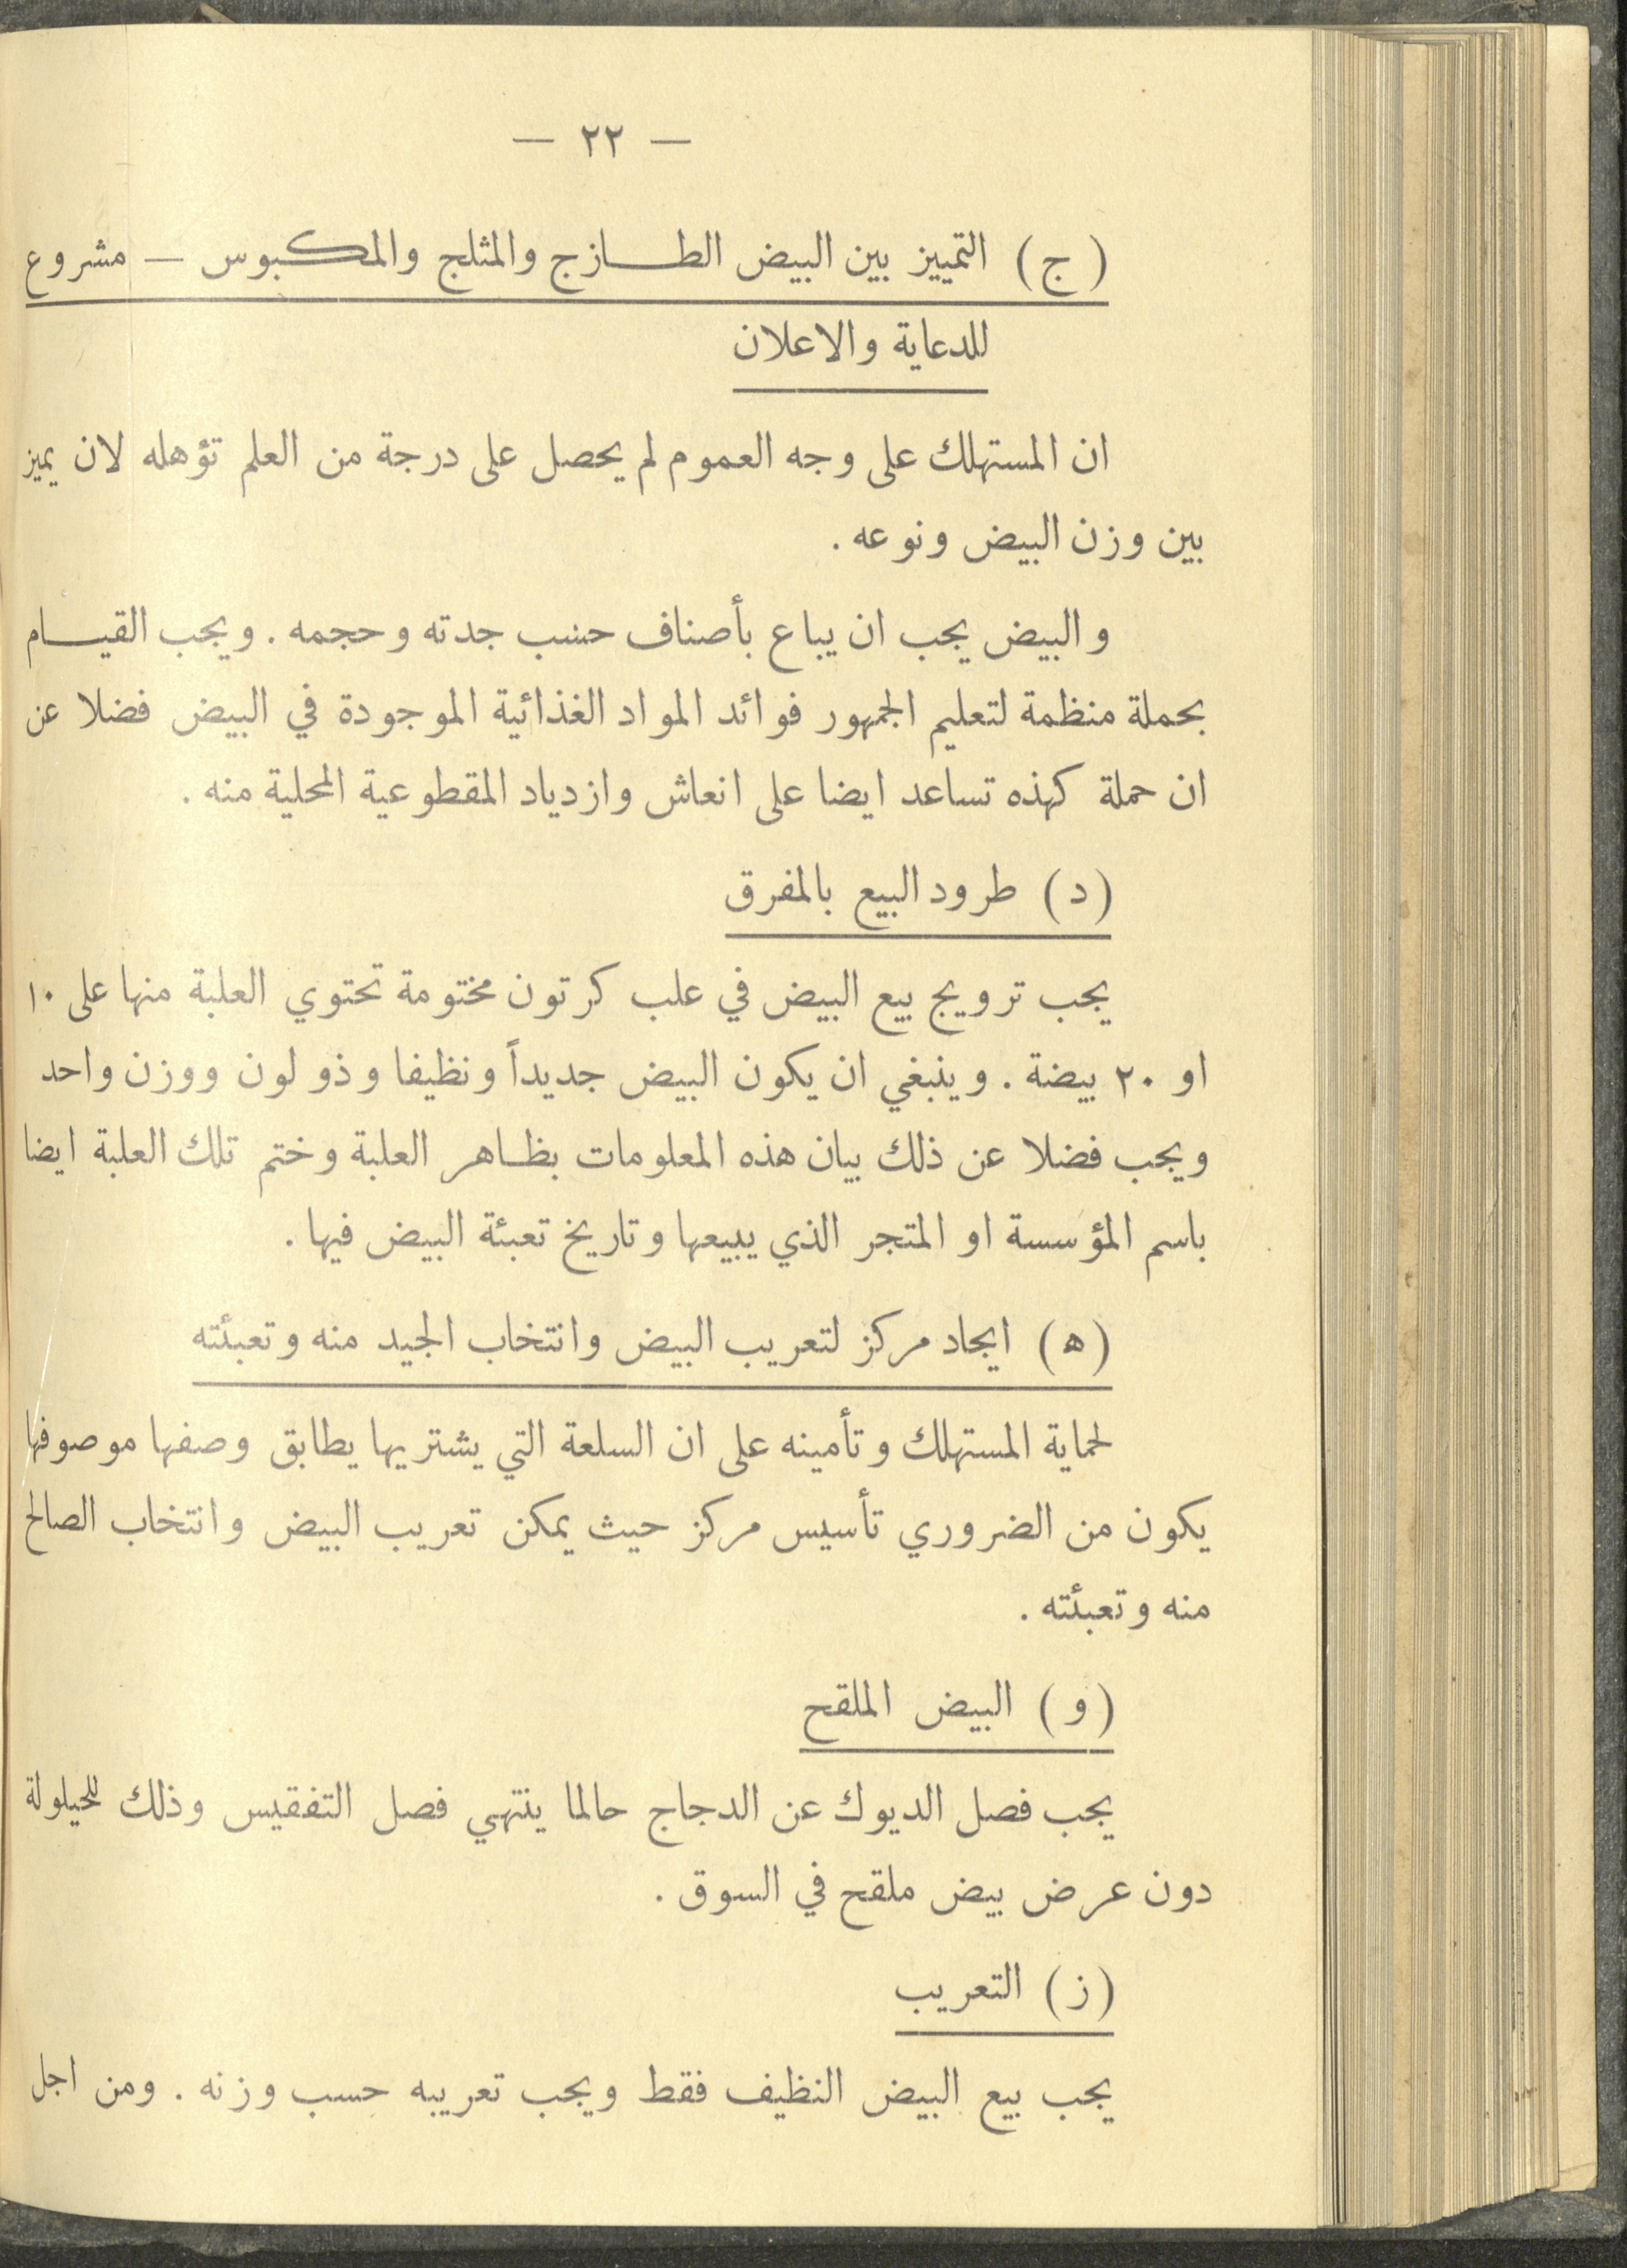 — ٢٢ —
( ج ) التمييز بين البيض الطـــازج والمثلج والمكـــبوس — مشروع
للدعاية والاعلان
ان المستهلك على وجه العموم لم يحصل على درجة من العلم تؤهله لان يميز
بين وزن البيض ونوعه .
والبيض يجب ان يباع بأصناف حسب جدته وحجمه . ويجب القيـــام
بحملة منظمة لتعليم الجمهور فوائد المواد الغذائية الموجودة في البيض فضلا عن
ان حملة كهذه تساعد ايضا على انعاش وازدياد المقطوعية المحلية منه .
( د ) طرود البيع بالمفرق
يجب ترويج بيع البيض في علب كرتون مختومة تحتوي العلبة منها على ١٠
او ٢٠ بيضة . وينبغي ان يكون البيض جديداً ونظيفا وذو لون ووزن واحد
ويجب فضلا عن ذلك بيان هذه المعلومات بظـاهر العلبة وختم تلك العلبة ايضا
باسم المؤسسة او المتجر الذي يبيعها وتاريخ تعبئة البيض فيها .
( ه ) ايجاد مركز لتعريب البيض وانتخاب الجيد منه وتعبئته
لحماية المستهلك وتأمينه على ان السلعة التي يشتريها يطابق وصفها موصوفها
يكون من الضروري تأسيس مركز حيث يمكن تعريب البيض وانتخاب الصالح
منه وتعبئته .
( و ) البيض الملقح
يجب فصل الديوك عن الدجاج حالما ينتهي فصل التفقيس وذلك للحيلولة
دون عرض بيض ملقح في السوق .
( ز ) التعريب
يجب بيع البيض النظيف فقط ويجب تعريبه حسب وزنه . ومن اجل